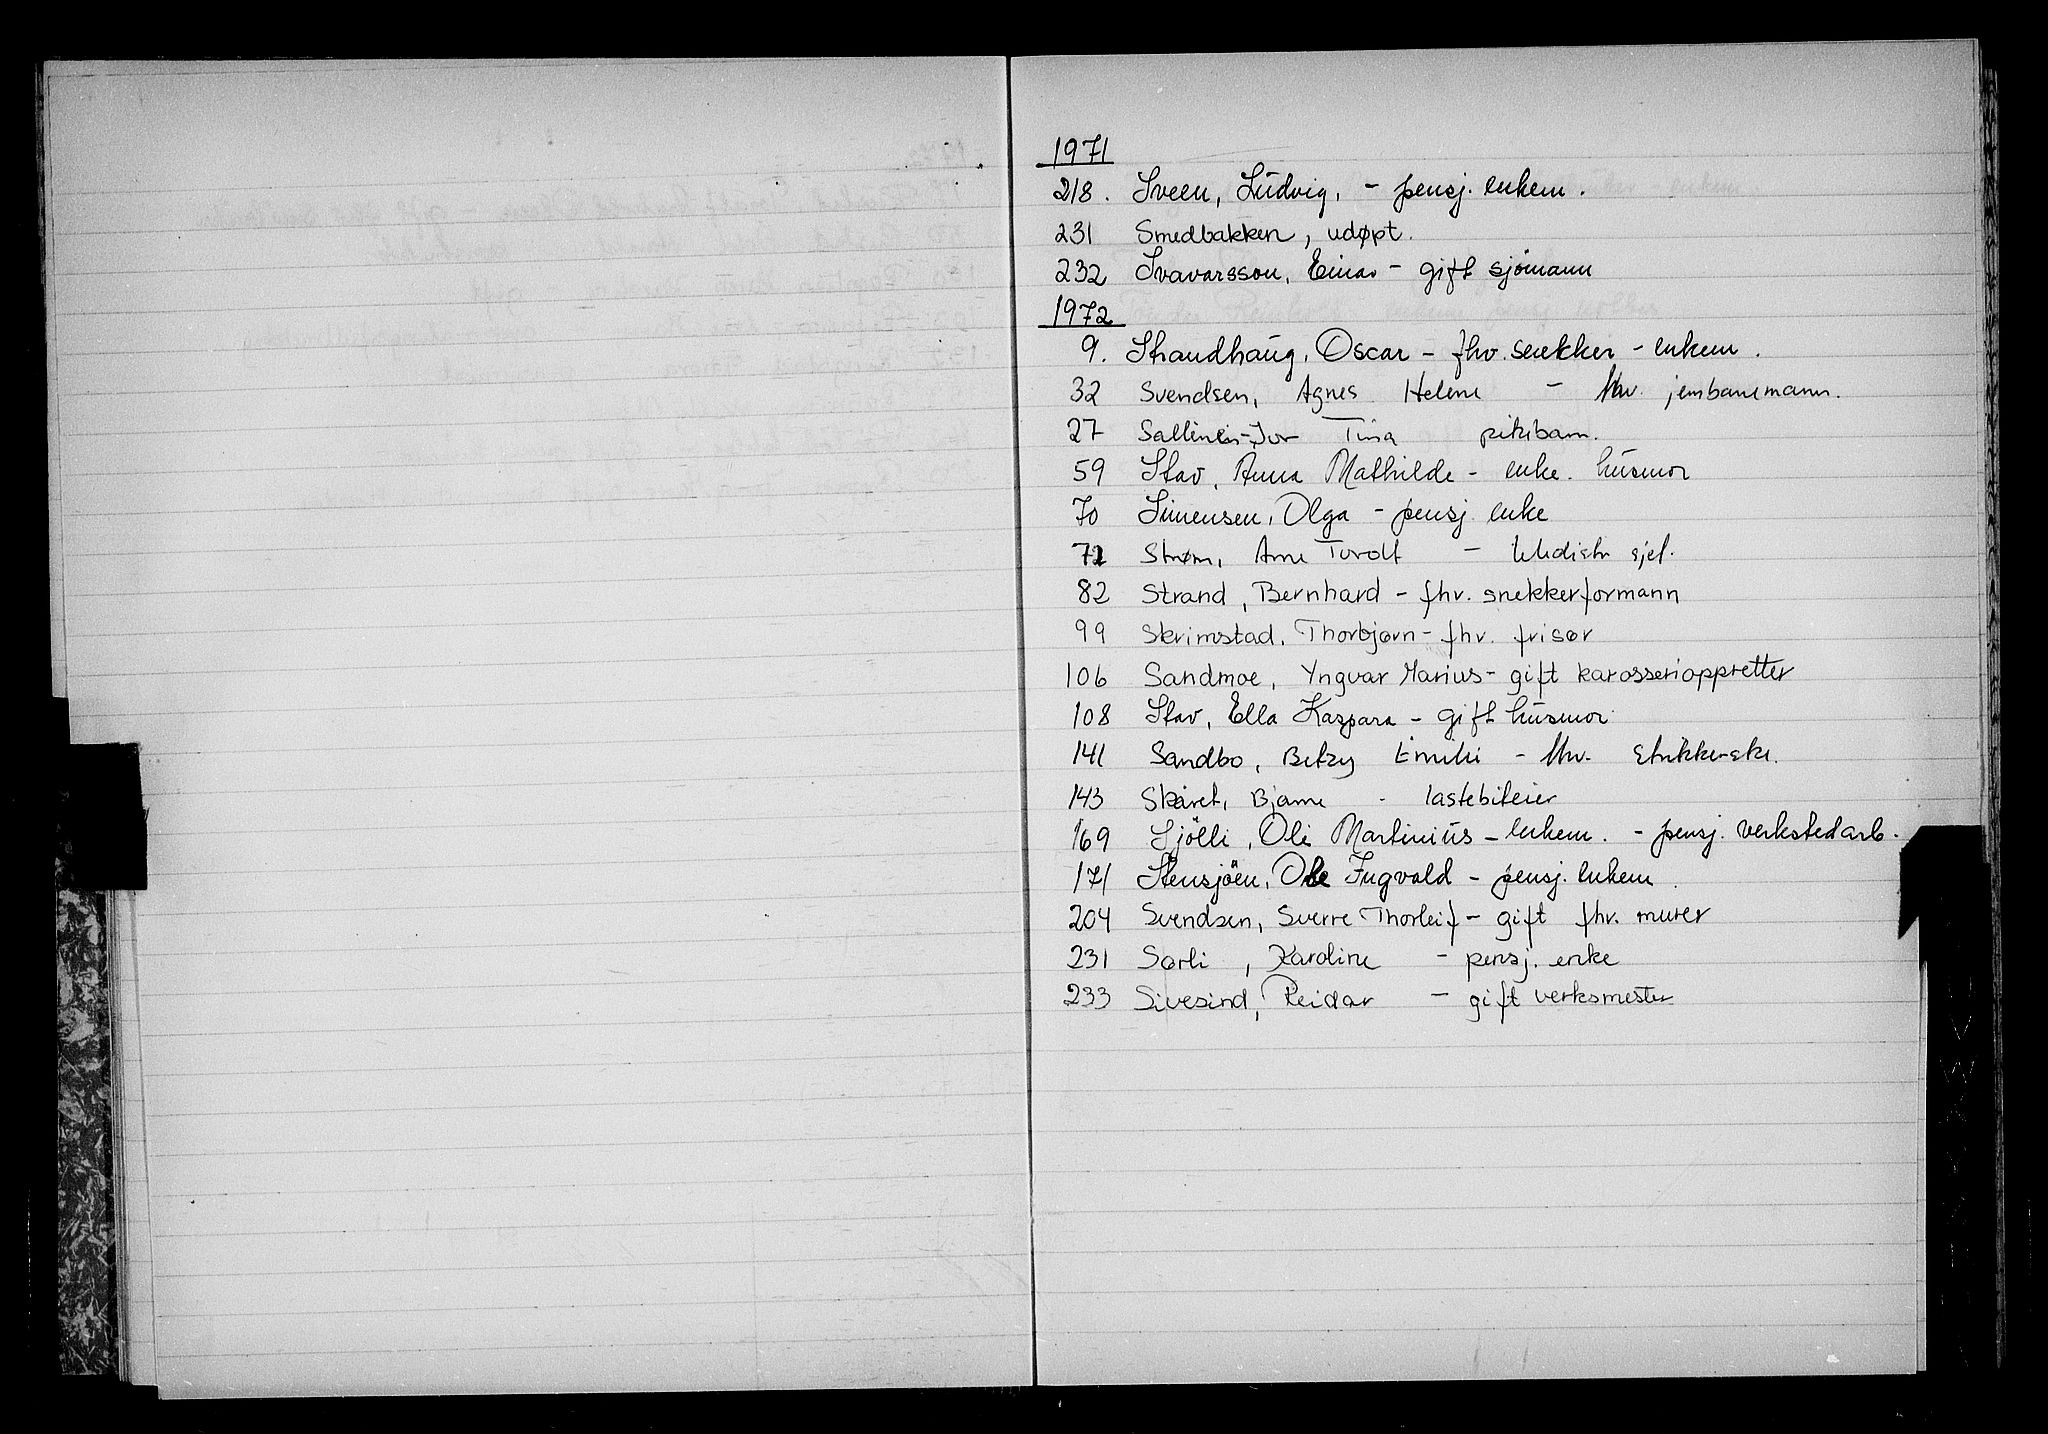 1971
218. Sveen, Ludvig, - pensj. enkem.
231 Smedbakken, udøpt.
232 Svavarsson, Einar - gift sjömann
1972
9. Strandhaug, Oscar - fhv. snekker - enkem.
32 Svendsen, Agnes Helene - fhv. jernbanemann.
27 Tina pikebarn.
59 Stav, Anna Mathilde - enke. husmor
70 Simensen, Olga - pensj. enke
72 Strøm, Arne - sjef.
82 Strand, Bernhard - fhv. snekkerformann
99 Skrimstad, Thorbjørn - fhv. frisør
106 Sandmoe, Yngvar Marius - gift karosserioppretter
108 Stav, Ella Kaspara - gift husmor
141 Sandbo, Betzy Emilie - fhv. strikkerske.
143 Skåret, Bjarne - lastebileier
169 Sjölli, Ole Martinius - enkem. - pensj. verkstedarb.
171 Stensjöen, Ole Ingvald - pensj. enkem.
204 Svendsen, Sverre Thorleif - gift fhv. murer
231 Sørli, Karoline - pensj. enke
233 Sivesind, Reidar - gift verksmester